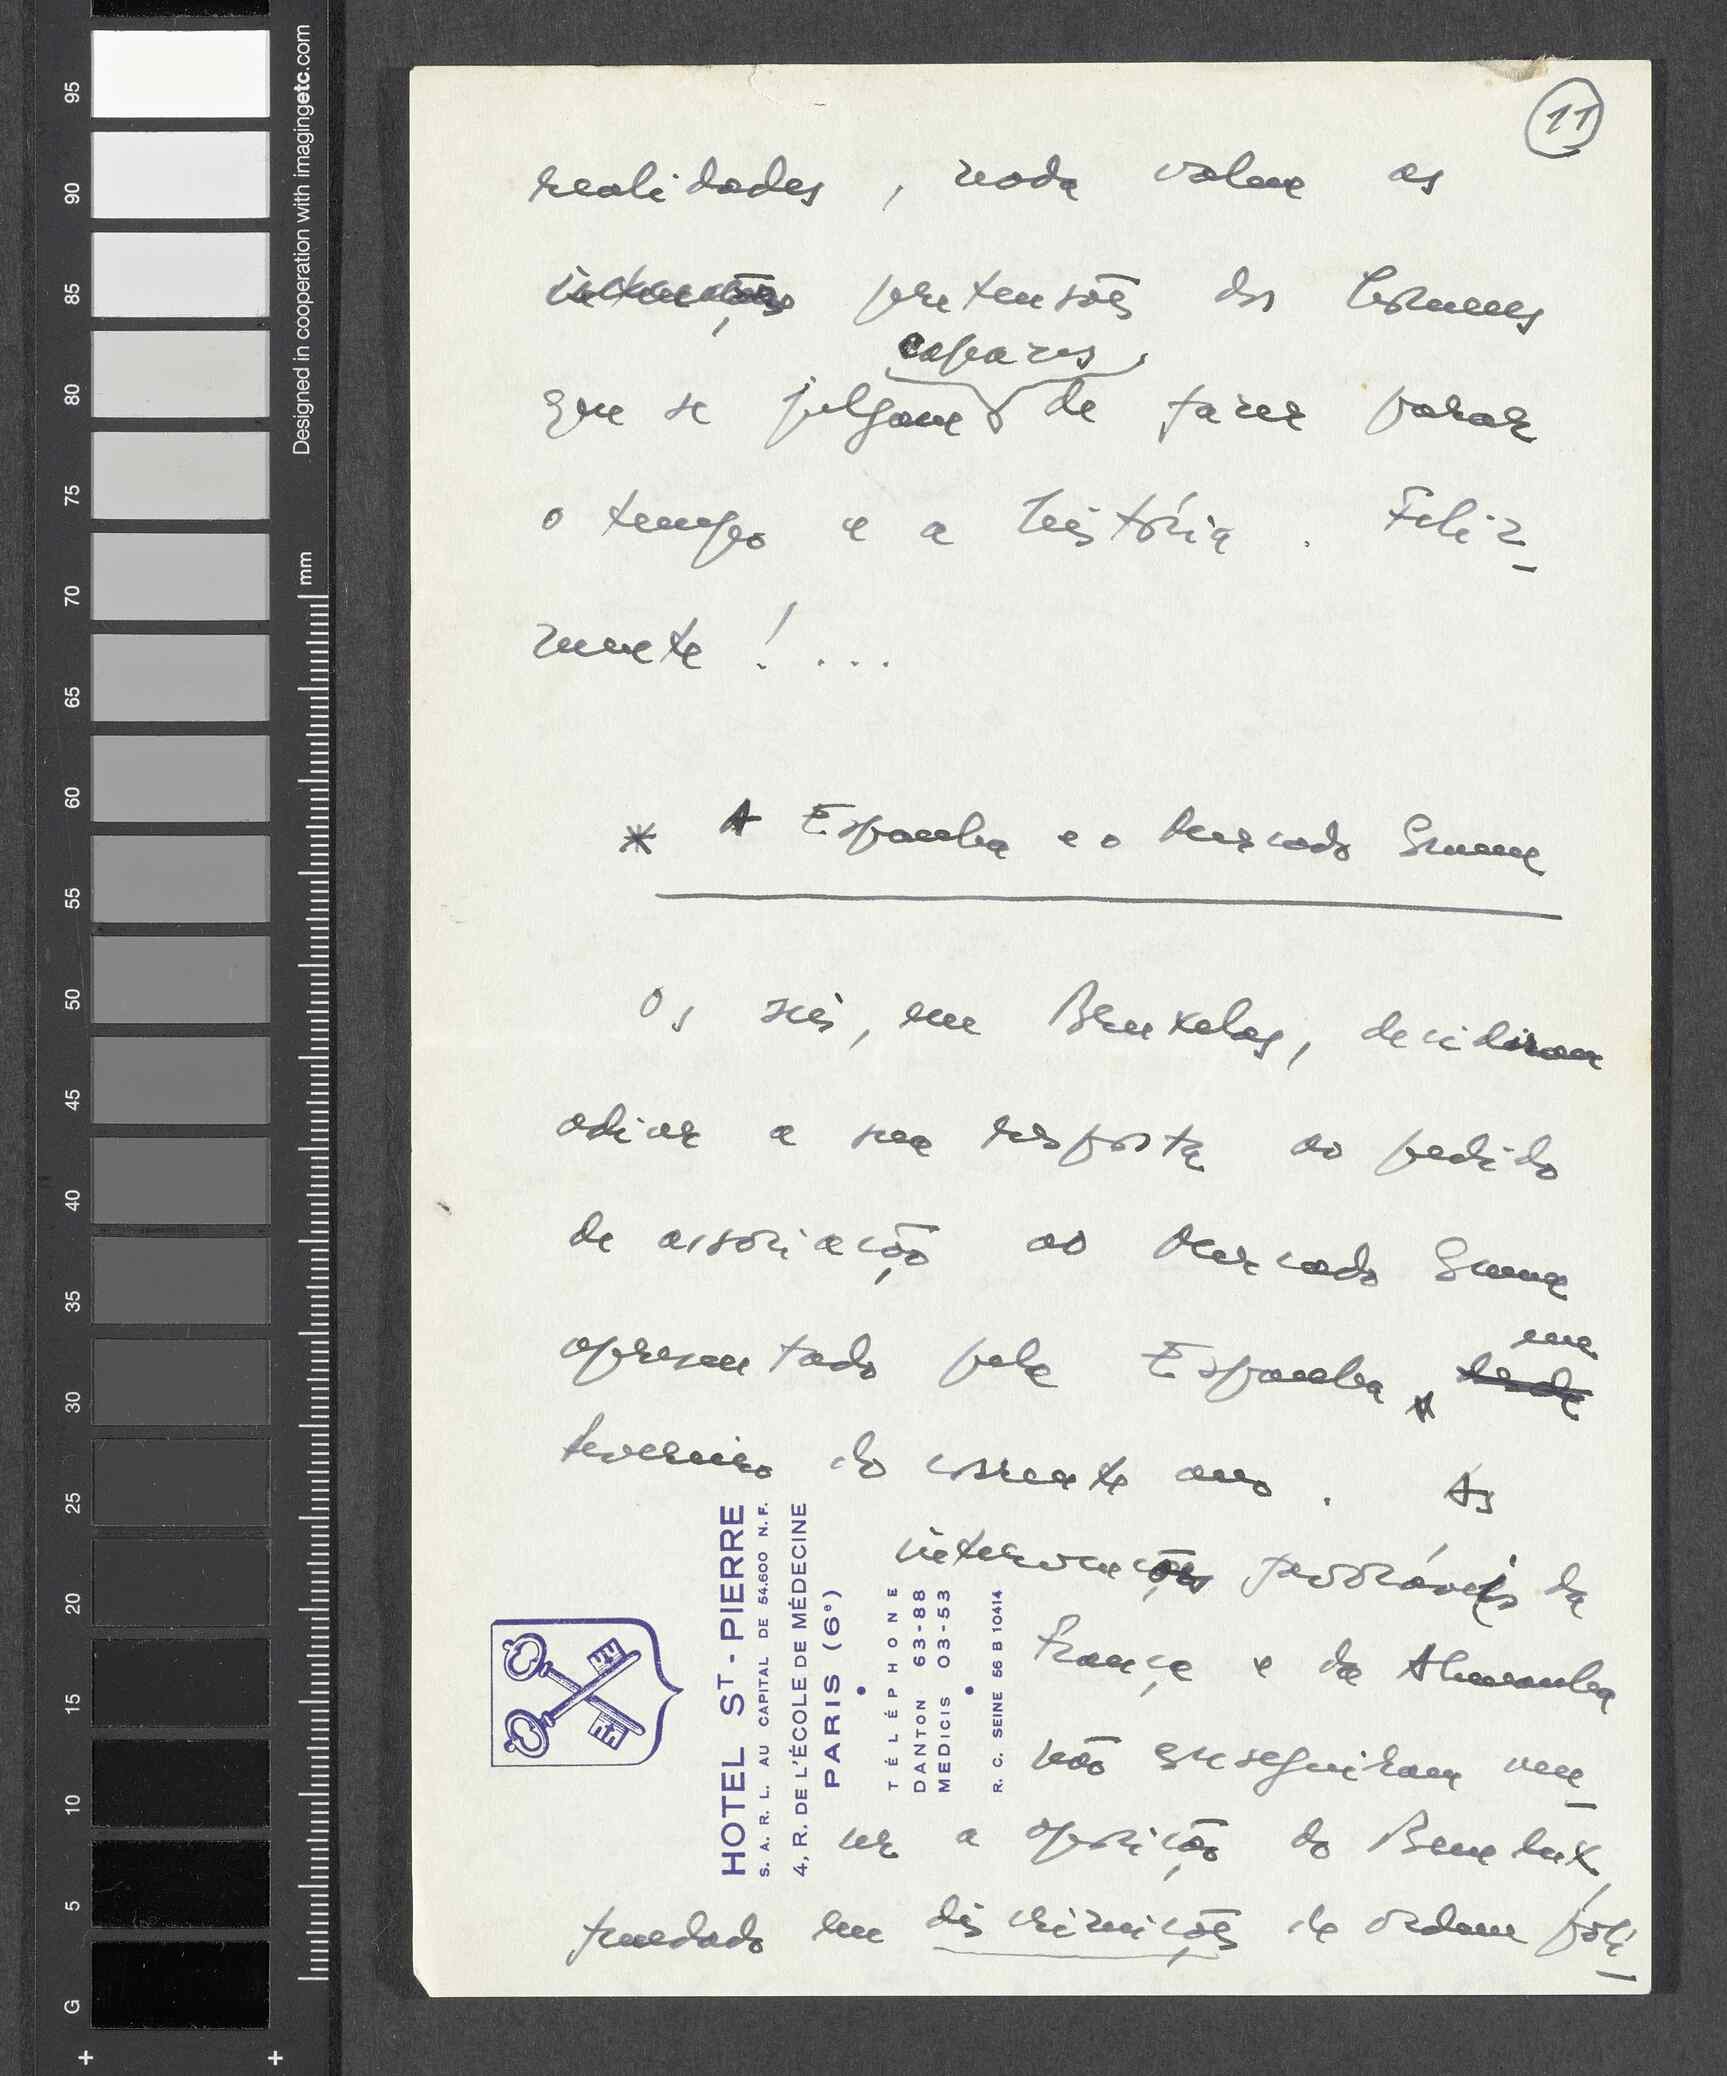 11
realidades, nada valem as
intenções pretensões dos homens
capazes
que se julgam de fazer parar
o tempo e a história. Feliz-
mente!...
* A Espanha e o Mercado Comum
Os seis, em Bruxelas, decidiram
adiar a sua resposta ao pedido
de associação ao Mercado Comum
em
apresentado pela Espanha desde
fevereiro do corrente ano. As
intervenções favoráveis da
França e da Alemanha
não conseguiram ven-
cer a oposição do Benelux,
fundado em discriminações de ordem polí-
HOTEL ST-PIERRE
S. A. R. L. AU CAPITAL DE 54.600 N. F.
4, R. DE L'ÉCOLE DE MÉDECINE
PARIS (6e)
TÉLÉPHONE
DANTON 63-88
MEDICIS 03-53
R. C. SEINE 56 B 10414
Designed in cooperation with imagingetc.com
mm
95
90
85
80
75
70
65
60
55
50
45
40
35
30
25
20
15
10
5
G